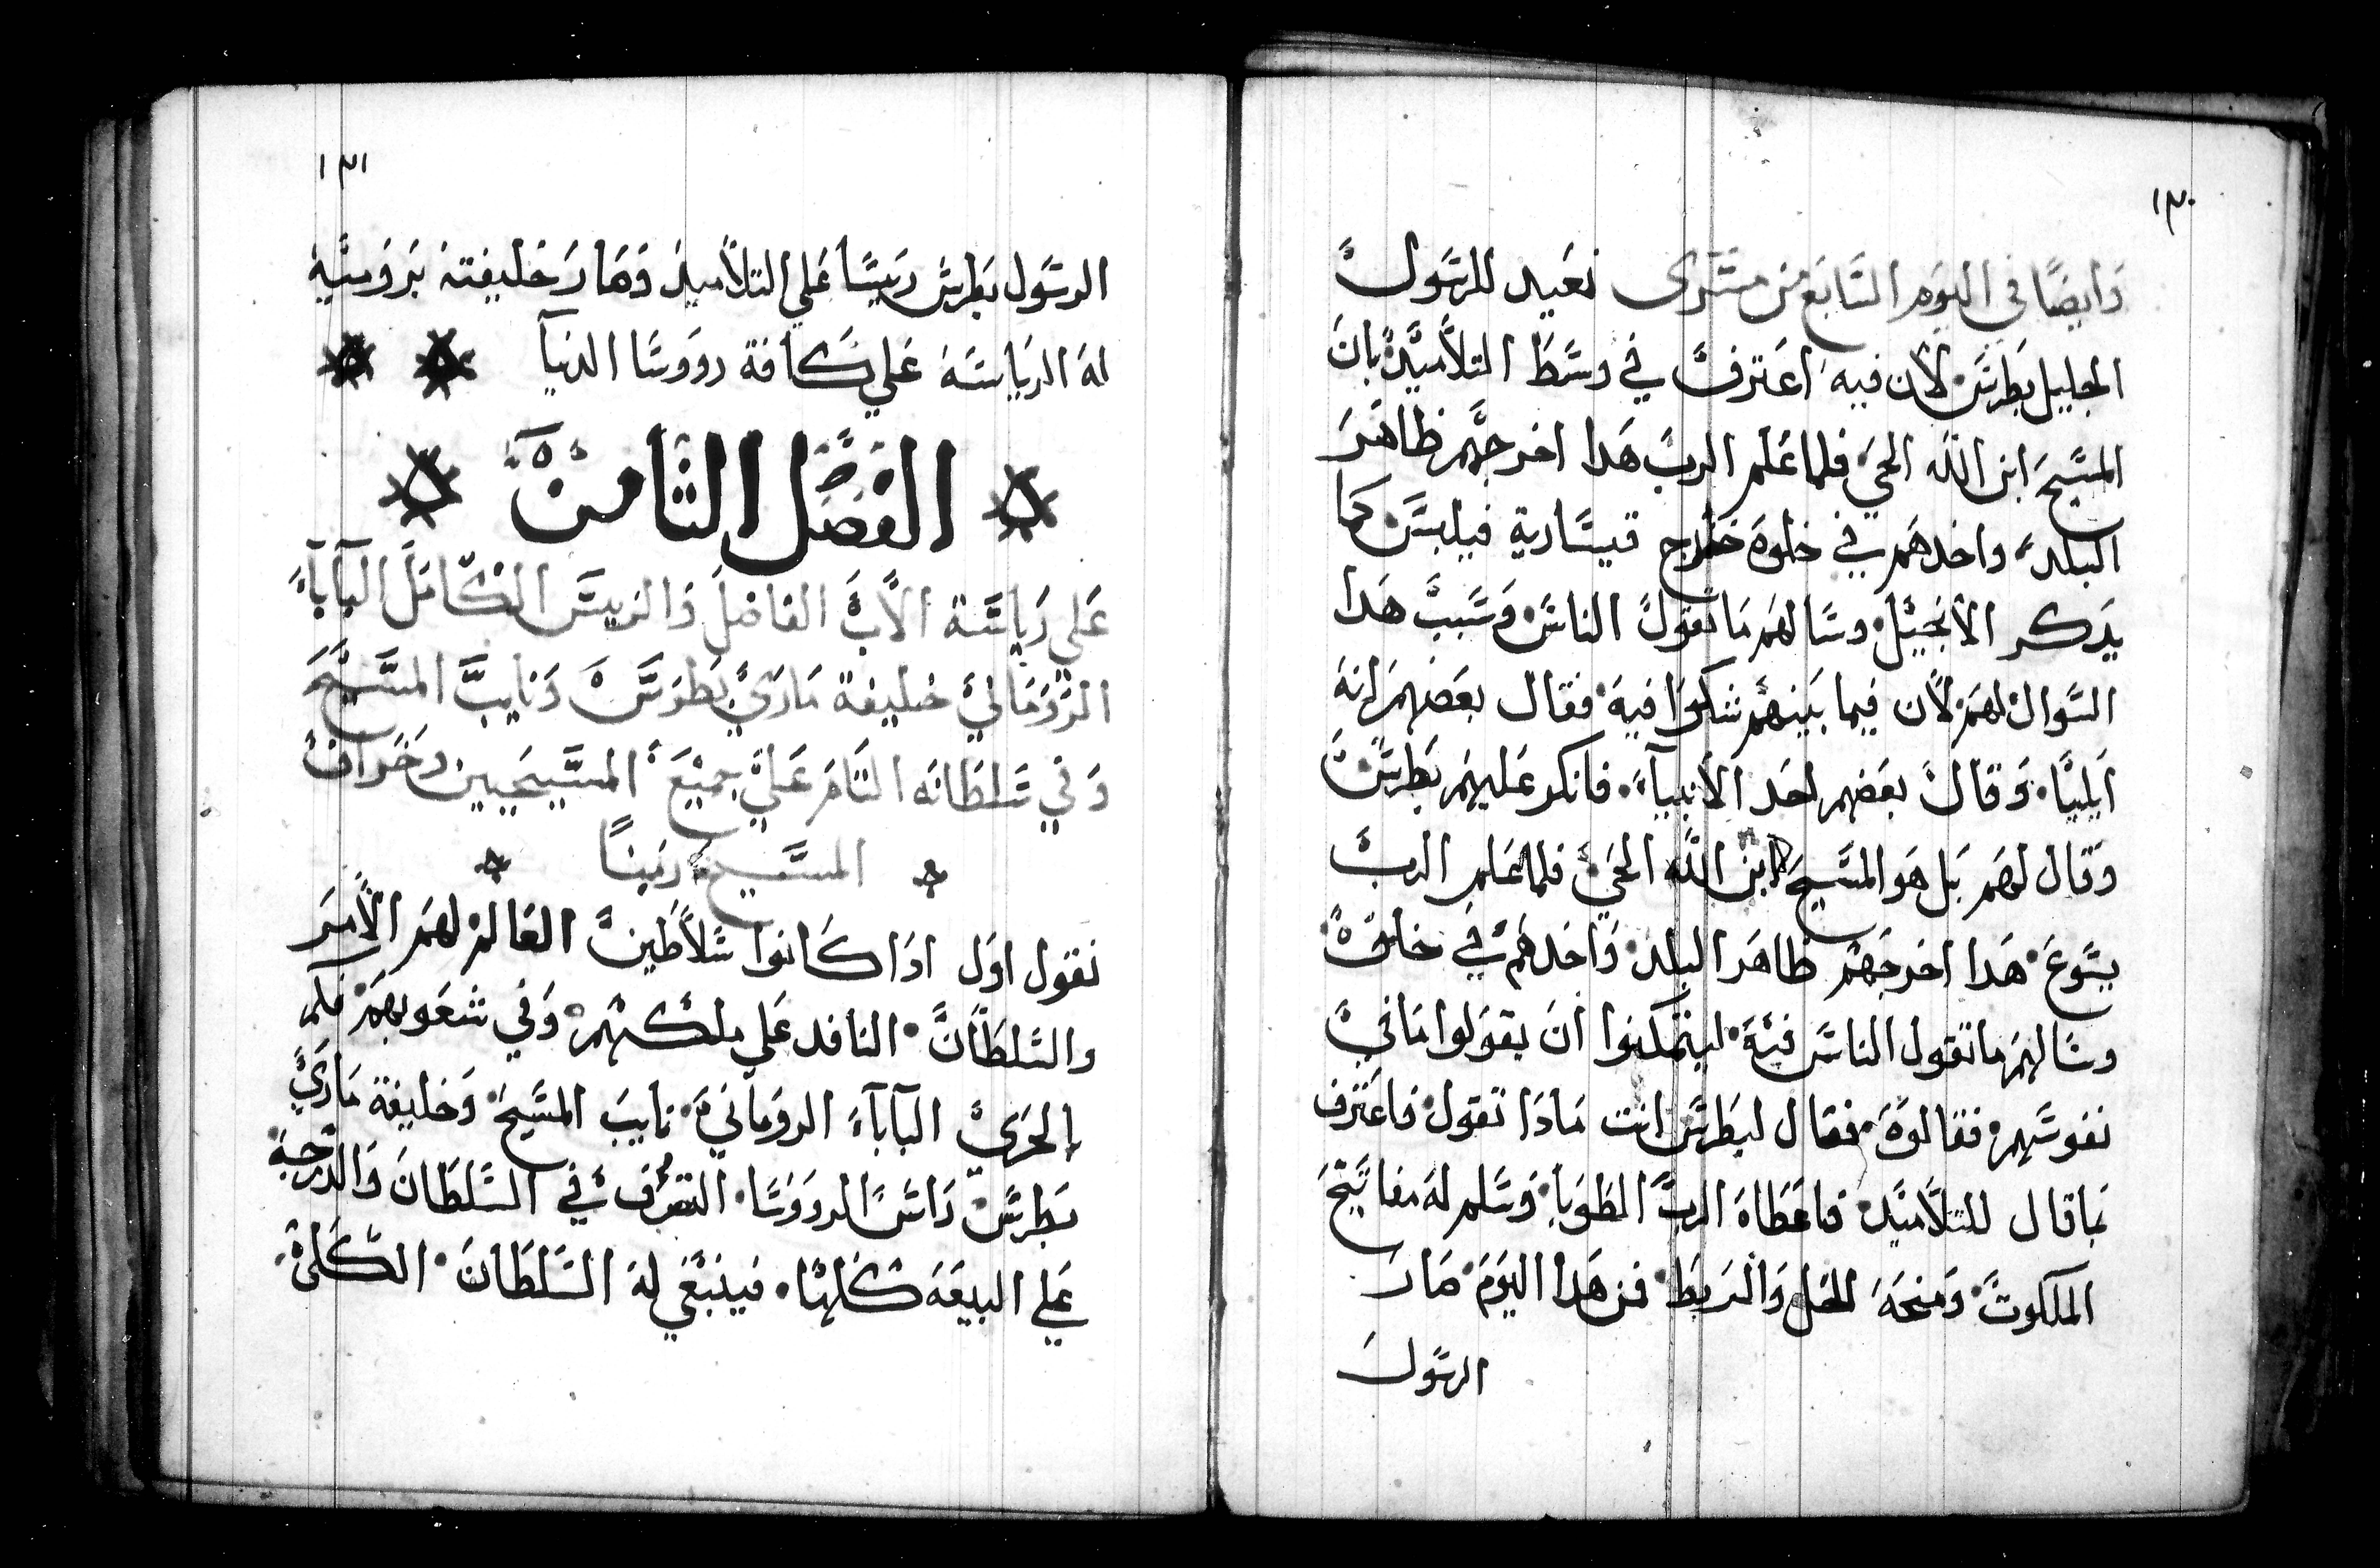 ١٣٠
وايضًا في اليوم السابع من مشرى نعيد للرسول
الجليل بطرس لان فيه اعترف في وسط التلاميد بان
المسيح ابن الله الحي فلما علم الرب هدا اخرجهم ظاهر
البلد واخدهم في خلوة خارج قيسارية فيلبس كما
يدكر الانجيل وسالهم ما تقول الناس وسبب هدا
السوال لهم لان فيما بينهم شكوا فيه فقال بعضهم انه
ايليا وقال بعضهم احد الانبيآء فانكر عليهم بطرس
وقال لهم بل هو المسيح ابن الله الحي فلما علم الرب
يسوع هدا اخرجهم ظاهر البلد واخدهم في خلوة
وسالهم ما تقول الناس فيه ليتمكنوا ان يقولوا ما في
نفوسهم فقالوه فقال لبطرس انت مادا تقول فاعترف
بما قال للتلاميد فاعطاه الرب الطوبا وسلم له مفاتيح
الملكوت ومنحه الحل والربط فمن هدا اليوم صار
الرسول
١٣١
الرسول بطرس رييسًا علي التلاميد وصار خليفته برومية
له الرياسه علي كافة رووسا الدنيآ
الفصل الثامن
علي رياسة الاب الفاضل والرييس الكامل البآبآء
الروماني خليفة ماري بطرس ونايب المسيح
وفي سلطانه التام علي جميع المسيحيين وخراف
المسيح ربنا
نقول اول ادا كانوا سلاطين العالم لهم الامر
والسلطان النافد علي ملكهم وفي شعوبهم فكم
بالحري البآبآء الروماني نايب المسيح وخليفة ماري
بطرس راس الرووسا التصرف في السلطان والدرجة
علي البيعه كلها فينبغي له السلطان الكلي